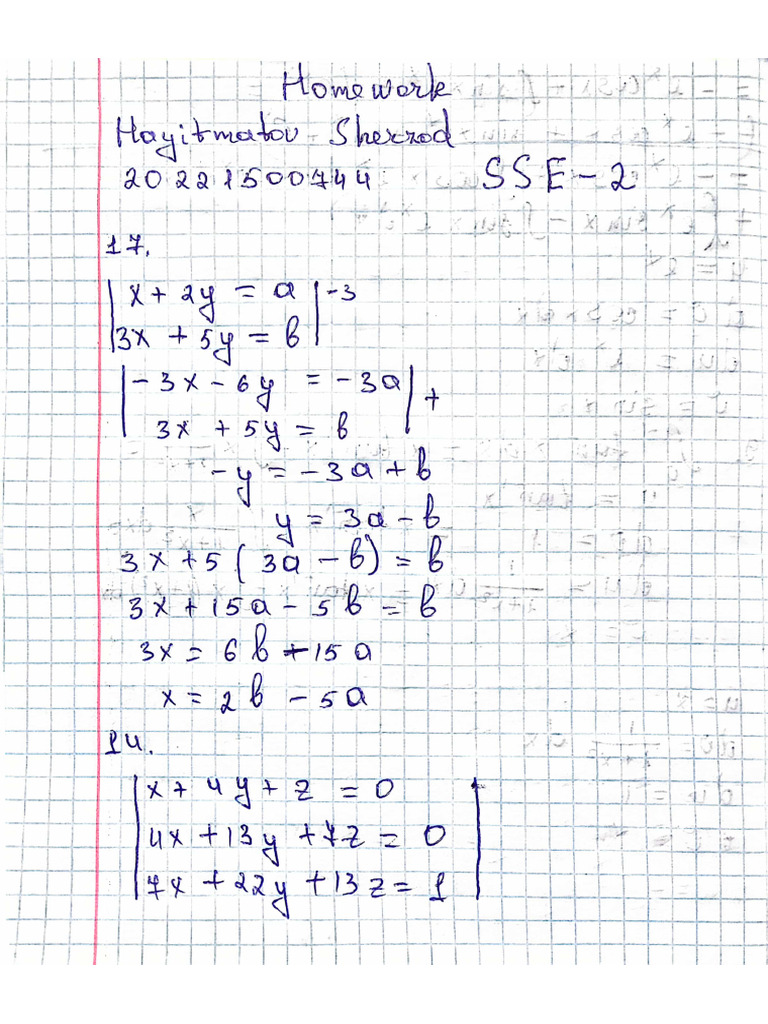 Homework
Hayitmatov Sherzod
20221500744 SSE-2
17.
x + 2y = a | -3
3x + 5y = b
-3x - 6y = -3a | +
3x + 5y = b
-y = -3a + b
y = 3a - b
3x + 5(3a - b) = b
3x + 15a - 5b = b
3x = 6b - 15a
x = 2b - 5a
14.
x + 4y + z = 0
4x + 13y + 7z = 0
7x + 22y + 13z = 1